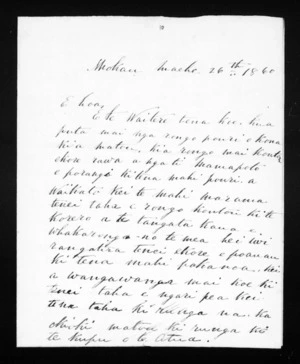 Mokau Maehe 26th 1860
E hoa,
E te Waitere tena koe, kia
puta mai nga rongo pouri o kona
kia matou, kia rongo mai koutou
ekore rawa a ngati Maniapoto
e porangi ki tena mahi pouri a
Waikato kei te mahi marama
tenei taha e rongo koutou ki te
korero a te tangata kaua e
whakarongo no te mea hei iwi
rangatira tenei, ekore e poauau
ki tena mahi pohanoa, kei
a wangawanga mai koe ki
tenei taha e ngari pea kei
tena taha ki runga na, ka
matou ki runga ki
te kupu o te Atua.